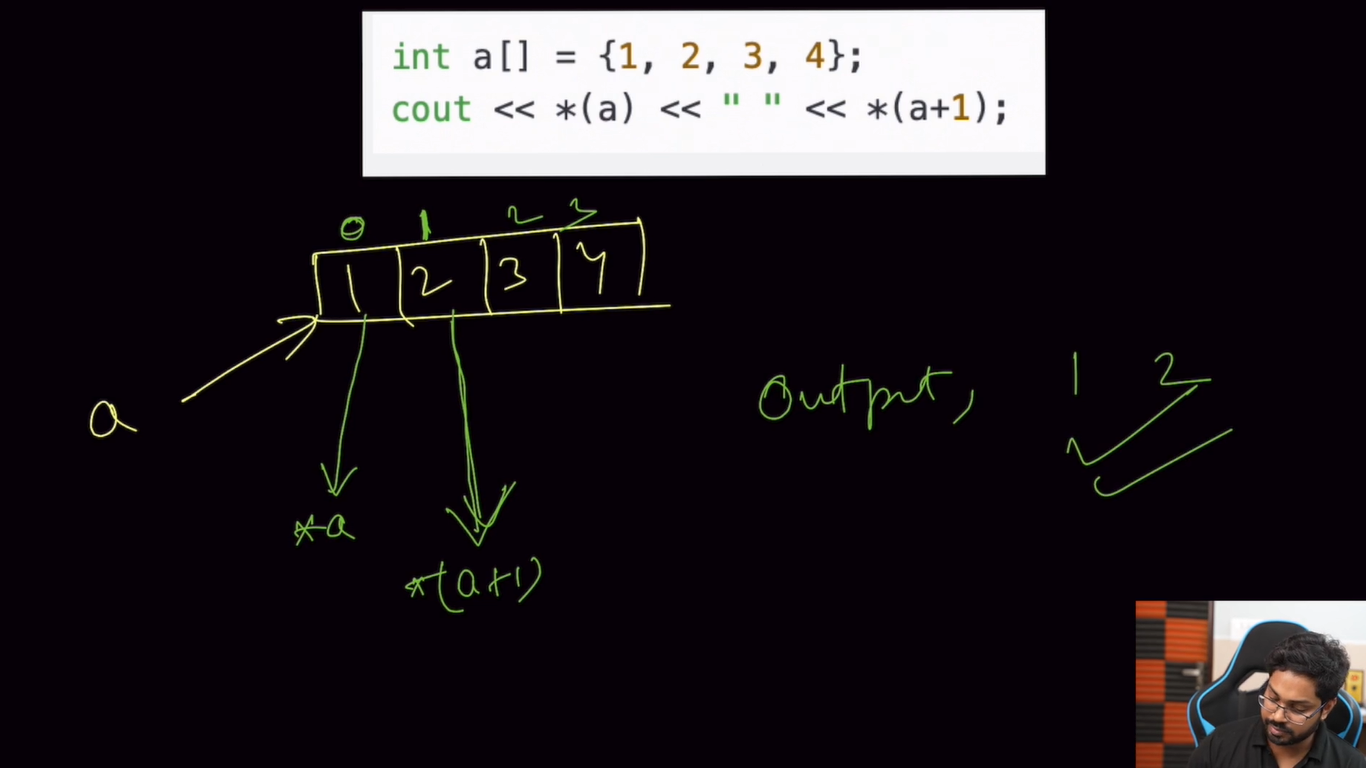 int a[] = {1, 2, 3, 4};
cout << *(a) << " " << *(a+1);
0 1 2 3
1 2 3 4
a
Output, 1 2
*a
*(a+1)